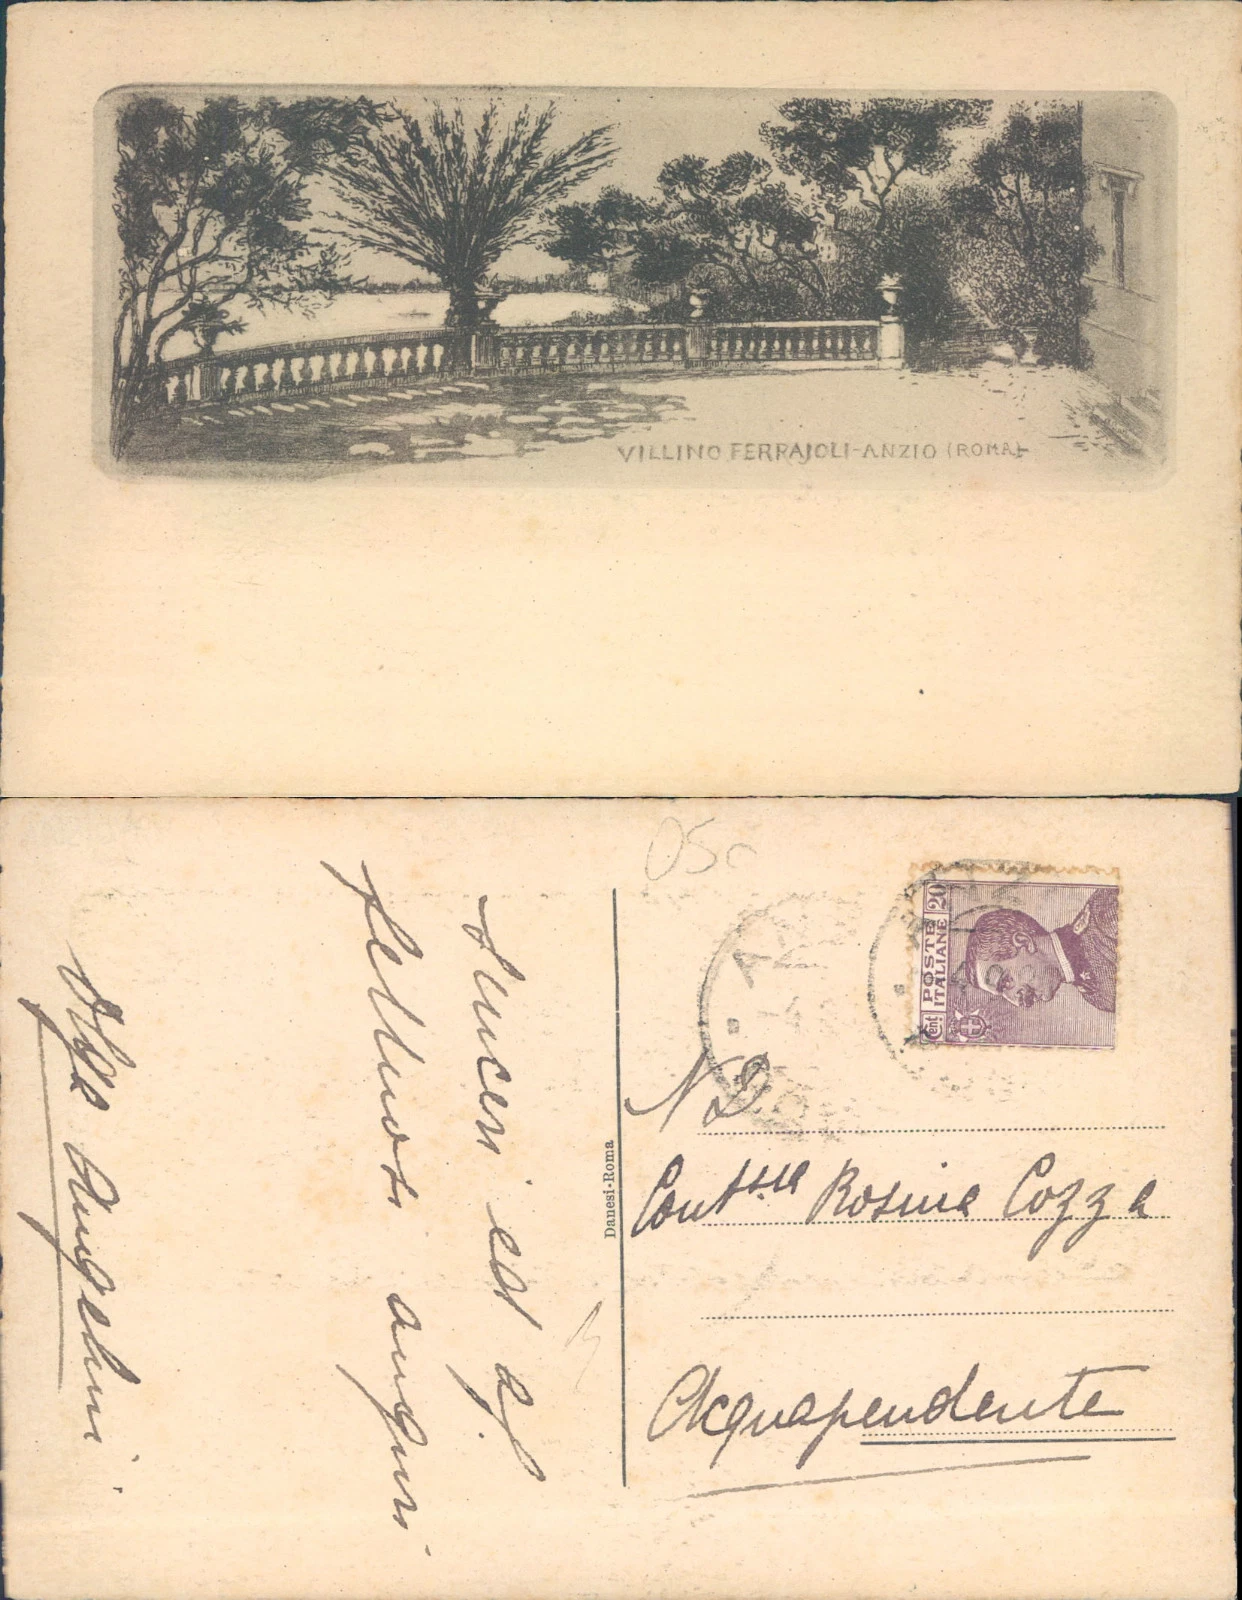 VILLINO FERRAJOLI-ANZIO (ROMA)
Sinceri ed af
fettuosi auguri
Olga Angelini
Danesi-Roma
05
POSTE
ITALIANE
Cent 20
N D
Cont.ssa Rosina Cozza
Acquapendente